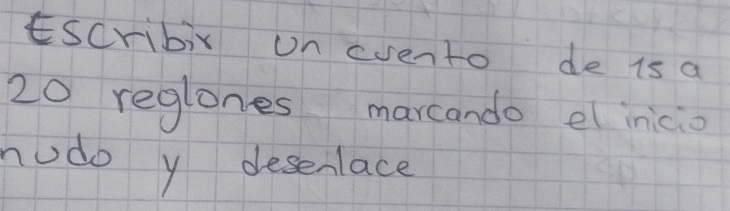 Escribir un cuento de 15 a
20 reglones marcando el inicio
nudo y desenlace